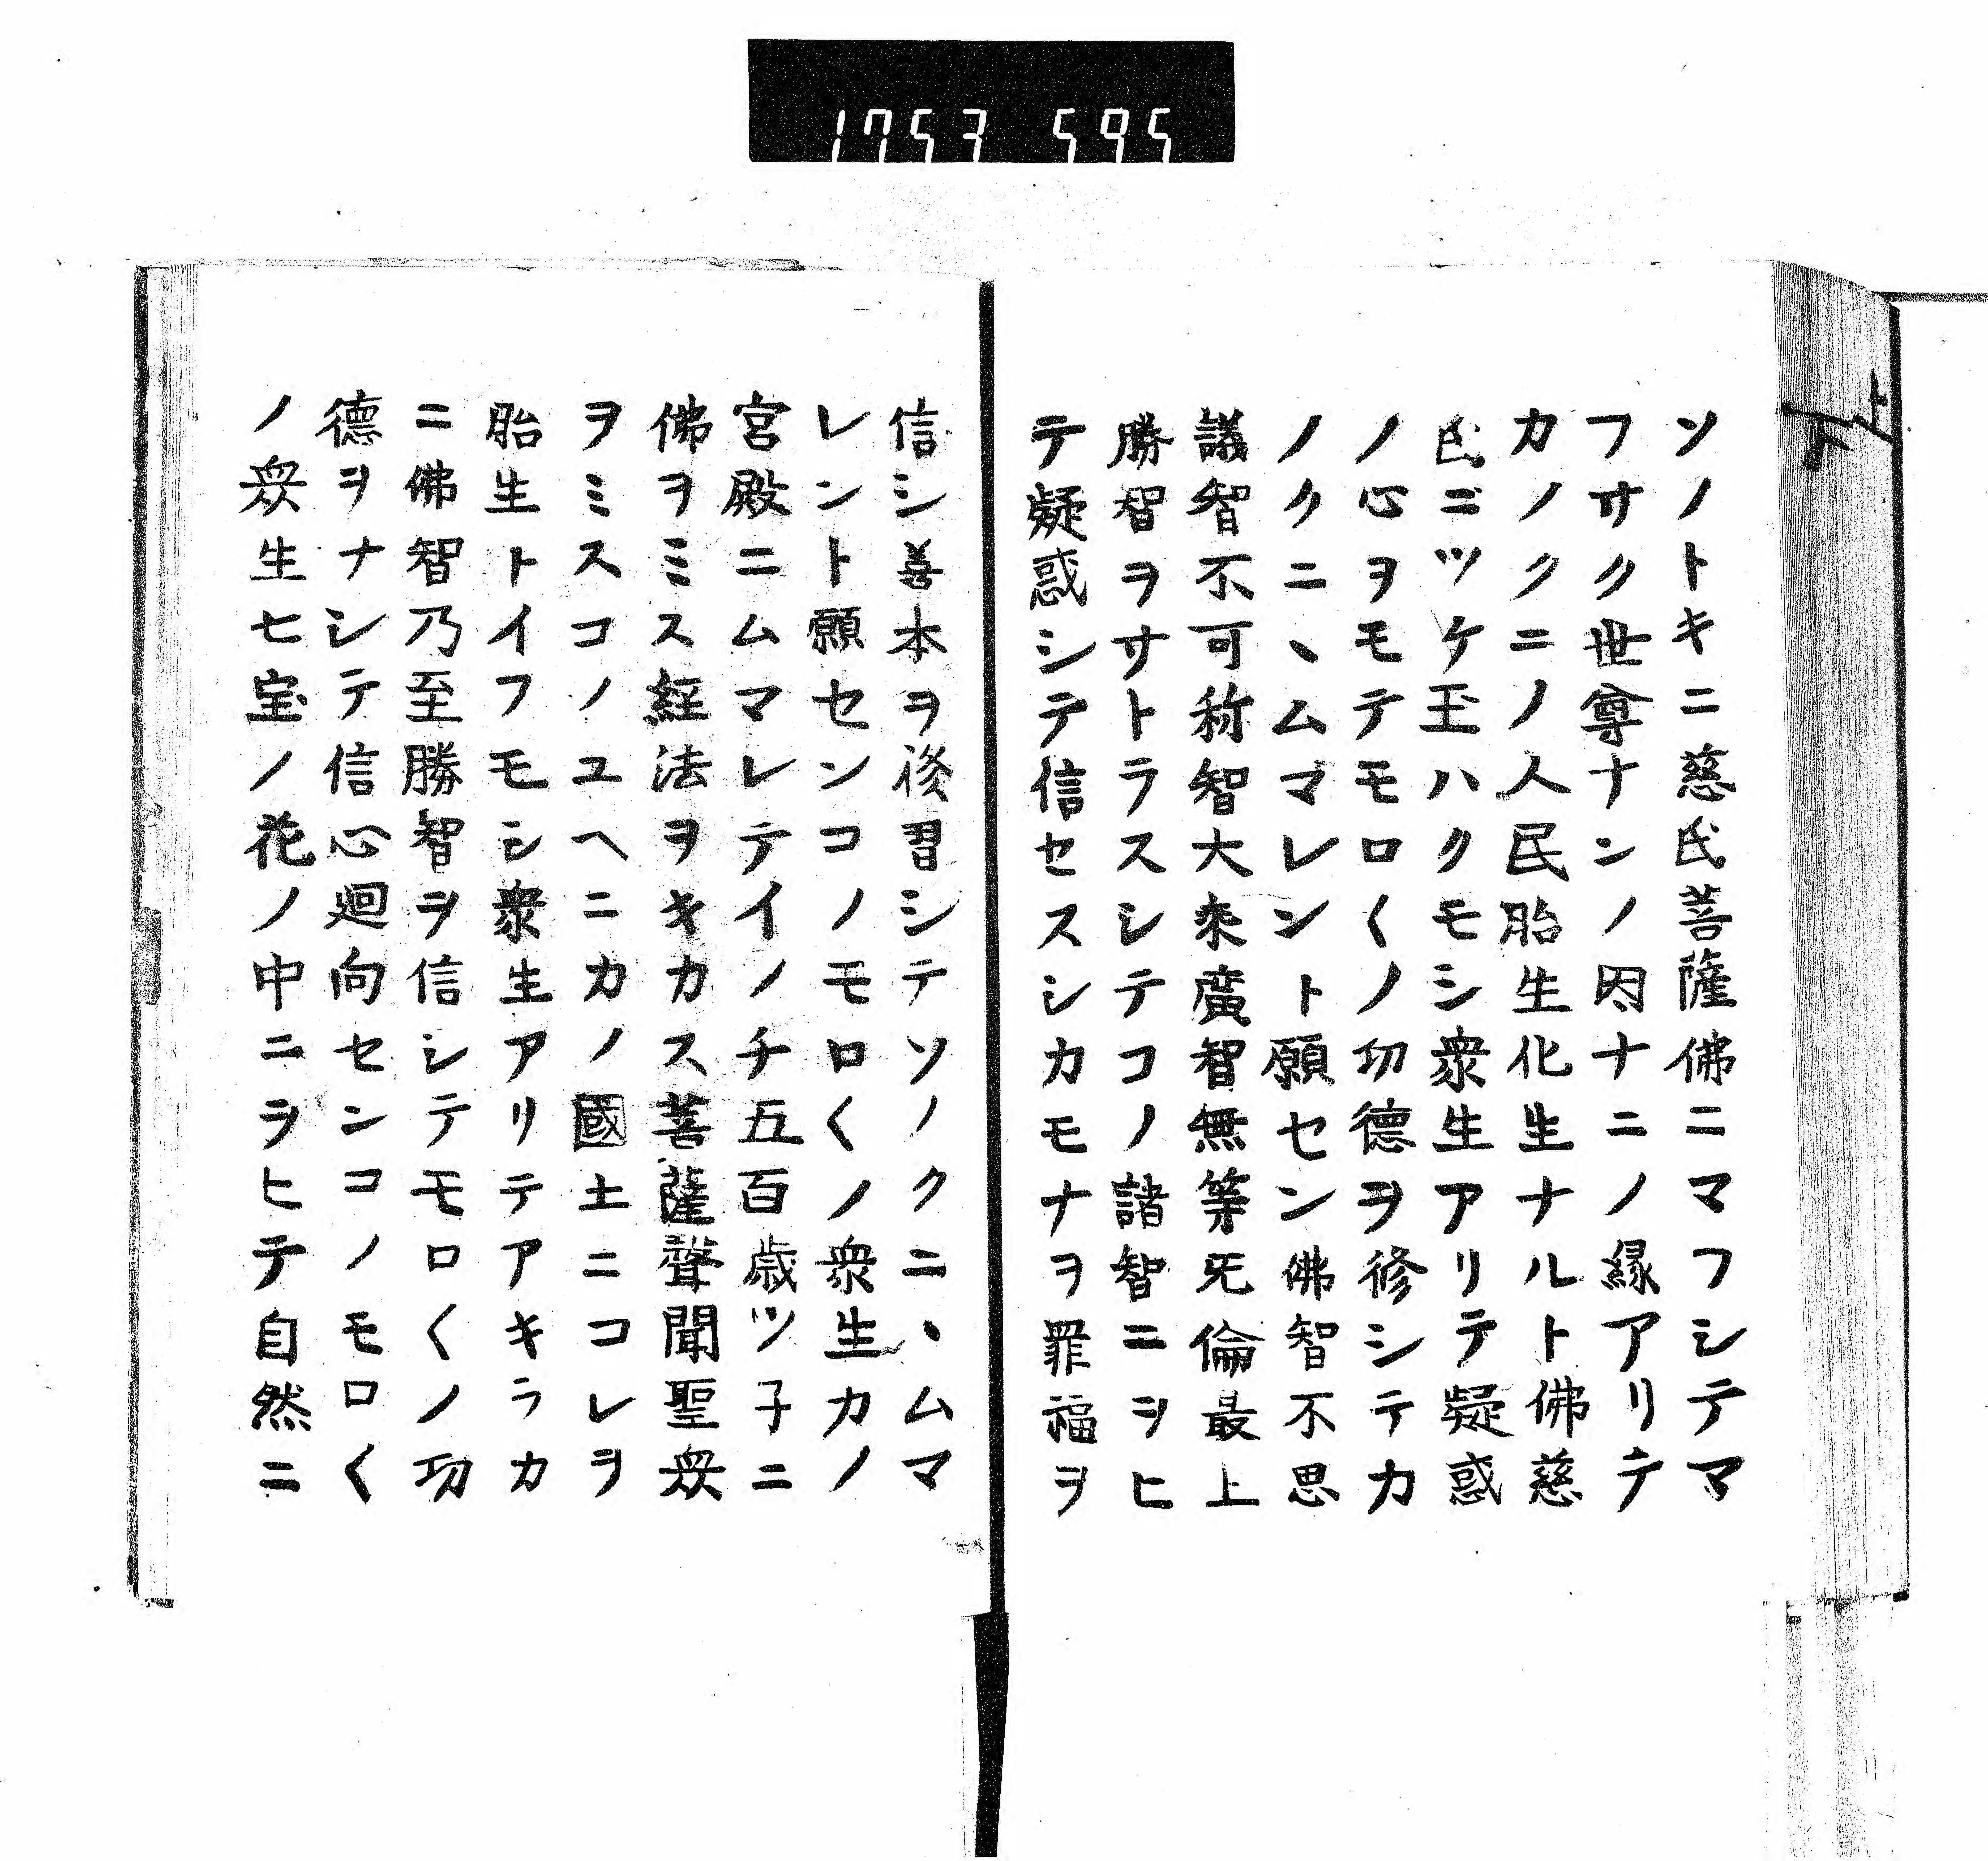 1753 595
ソノトキニ慈氏菩薩佛ニマフシテマ
フサク世尊ナンノ因ナニノ縁アリテ
カノクニノ人民胎生化生ナルト佛慈
氏ニツケ玉ハクモシ衆生アリテ疑惑
ノ心ヲモテモロ〱ノ功德ヲ修シテカ
ノクニヽムマレント願セン佛智不思
議智不可称智大乘廣智無等无倫最上
勝智ヲサトラスシテコノ諸智ニヲヒ
テ疑惑シテ信セスシカモナヲ罪福ヲ
信シ善本ヲ修習シテソノクニヽムマ
レント願センコノモロ〱ノ衆生カノ
宮殿ニムマレテイノチ五百歳ツ子ニ
佛ヲミス経法ヲキカス菩薩聲聞聖衆
ヲミスコノユヘニカノ國土ニコレヲ
胎生トイフモシ衆生アリテアキラカ
ニ佛智乃至勝智ヲ信シテモロ〱ノ功
德ヲナシテ信心廻向センコノモロ〱
ノ衆生七宝ノ花ノ中ニヲヒテ自然ニ